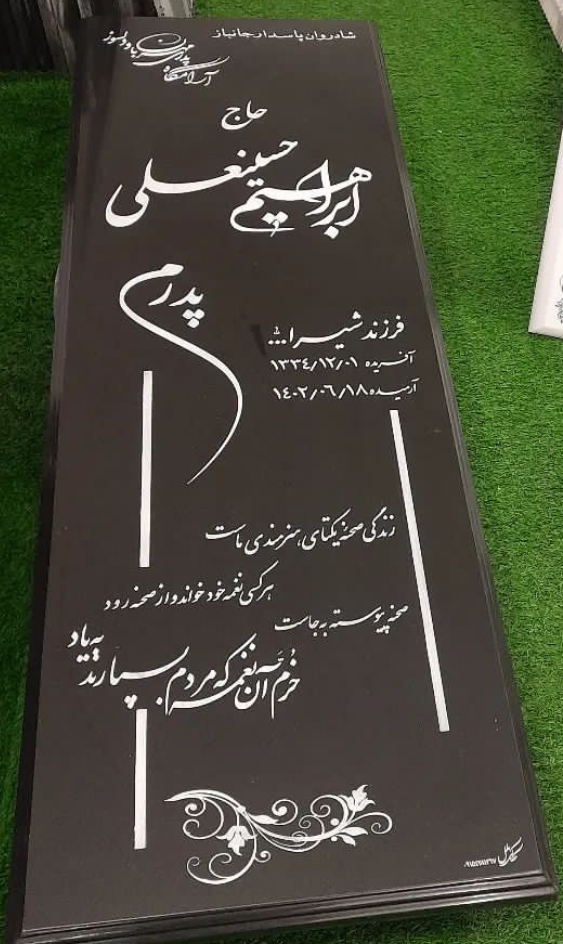 شادروان پاسدار جانباز
آرامگاه پدری مهربان و دلسوز
حاج
ابراهیم حسینعلی
پدرم
فرزند شیرا...
آفریده ۱۳۳۴/۱۲/۰۱
آرمیده ۱۴۰۲/۰۶/۱۸
زندگی صحنه یکتای هنرمندی ماست
هرکسی نغمه خود خواند و از صحنه رود
صحنه پیوسته به جاست
خرّم آن نغمه که مردم بسپارند به یاد